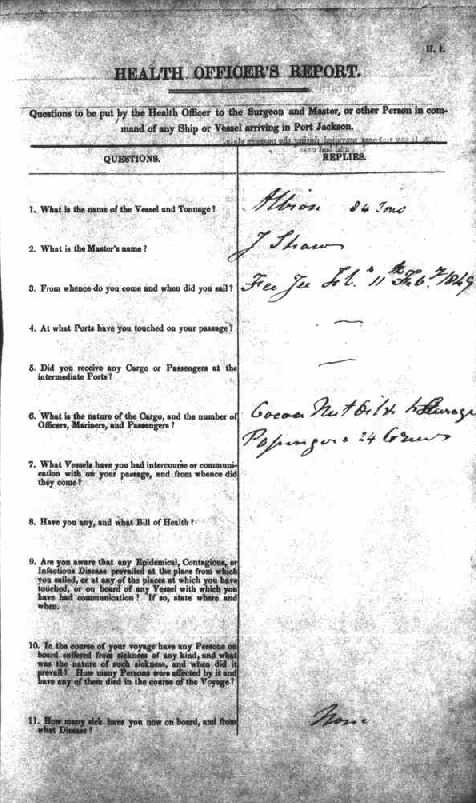 H. 1.
HEALTH OFFICER'S REPORT.
Questions to be put by the Health Officer to the Surgeon and Master, or other Person in com-
mand of any Ship or Vessel arriving in Port Jackson.
QUESTIONS.
REPLIES.
1. What is the name of the Vessel and Tonnage?
Albion 84 Tons
2. What is the Master's name?
J Shaw
3. From whence do you come and when did you sail?
Fee Jee 11th Feby 1849
4. At what Ports have you touched on your passage?
—
5. Did you receive any Cargo or Passengers at the
intermediate Ports?
—
6. What is the nature of the Cargo, and the number of
Officers, Mariners, and Passengers?
Cocoa Nut Oil &
24 Crew
7. What Vessels have you had intercourse or communi-
cation with on your passage, and from whence did
they come?
8. Have you any, and what Bill of Health?
9. Are you aware that any Epidemical, Contagious, or
Infectious Disease prevailed at the place from which
you sailed, or at any of the places at which you have
touched, or on board of any Vessel with which you
have had communication? If so, state where and
when.
10. In the course of your voyage have any Persons on
board suffered from sickness of any kind, and what
was the nature of such sickness, and when did it
prevail? How many Persons were affected by it and
have any of them died in the course of the Voyage?
11. How many sick have you now on board, and from
what Disease?
None